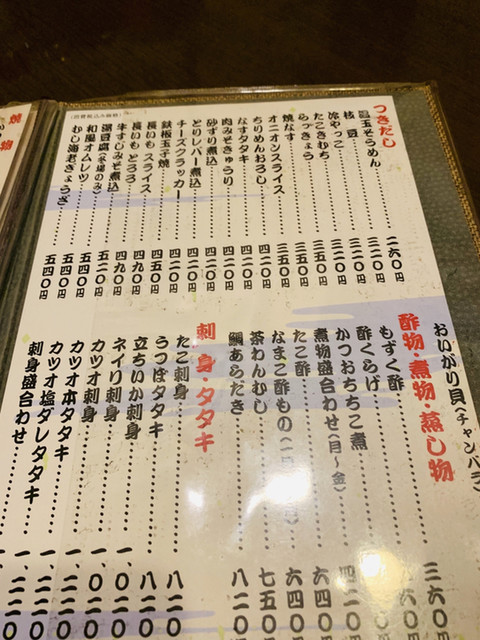 つきだし
豆玉そうめん……二六〇円
枝豆……三二〇円
冷やっこ……三二〇円
たこきむち……三五〇円
らっきょう……三二〇円
焼なす……三五〇円
オニオンスライス……三五〇円
ちりめんおろし……四二〇円
なすタタキ……四二〇円
肉みそきゅうり……四二〇円
砂ずり煮込……四二〇円
とりレバー煮込……四二〇円
チーズクラッカー……四二〇円
鉄板玉子焼……四二〇円
長いもスライス……四五〇円
長いもとろろ……四九〇円
牛すじみそ煮込……四九〇円
湯豆腐(冬場のみ)……五二〇円
和風オムレツ……五四〇円
むし海老ぎょうざ……五四〇円
おいがり貝(チャンバラ)
酢物・煮物・蒸し物
もずく酢……三六〇
酢くらげ
かつおちちこ煮……四二〇
煮物盛合わせ(月〜金)
たこ酢……六四〇
なまこ酢もの
茶わんむし……七五〇
鯛あらだき……八二〇
刺身・タタキ
たこ刺身……八二〇
うつぼタタキ……八二〇
立ちいか刺身
ネイリ刺身
カツオ刺身
カツオ本タタキ
カツオ塩ダレタタキ
刺身盛合わせ